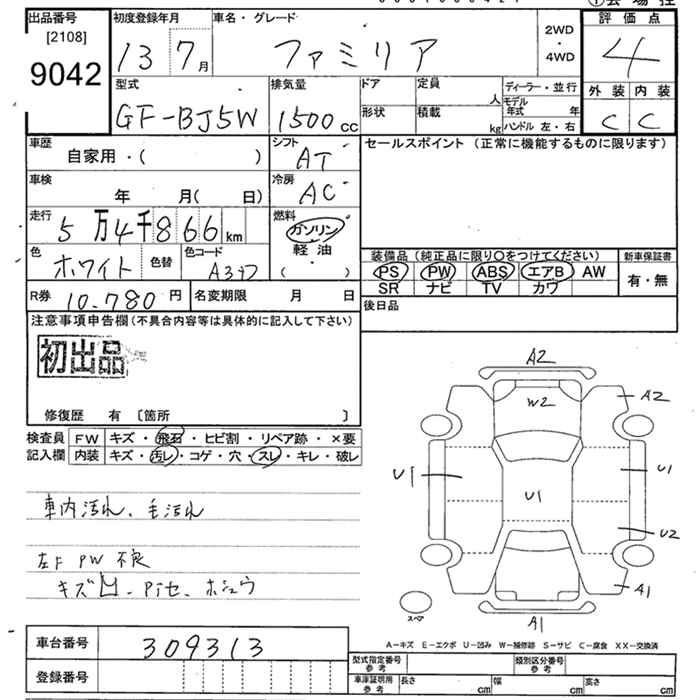 出品番号 初度登録年月 車名・グレード 2WD・4WD 評価点
[2108]
9042 13 7月 ファミリア 4
型式 排気量 ドア 定員 人 ディーラー・並行 外装 内装
GF-BJ5W 1500cc 形状 積載 kg モデル年式 年 C C
ハンドル 左・右
車歴 自家用・( ) シフト AT セールスポイント (正常に機能するものに限ります)
車検 年 月( 日) 冷房 AC
走行 5万4千866km 燃料 ガソリン
軽油
( )
色 ホワイト 色替 色コード 装備品 (純正品に限り〇をつけてください) 新車保証書
PS PW ABS エアB AW 有・無
SR ナビ TV カワ
R券 10.780円 名変期限 月 日 後日品
注意事項申告欄(不具合内容等は具体的に記入して下さい)
初出品
修復歴 有 〔箇所 〕
検査員 FW キズ・飛石・ヒビ割・リペア跡・×要
記入欄 内装 キズ・汚レ・コゲ・穴・スレ・キレ・破レ
車内汚れ、毛汚れ
左F PW 不良
キズ凹
A2
W2 A2
U1 U1 U1
U2
A1
スペア A1
A-キズ E-エクボ U-凹み W-補修跡 S-サビ C-腐食 XX-交換済
車台番号 309313
登録番号
型式指定番号 参考 類別区分番号 参考
車庫証明用 参考 長さ cm 幅 cm 高さ cm